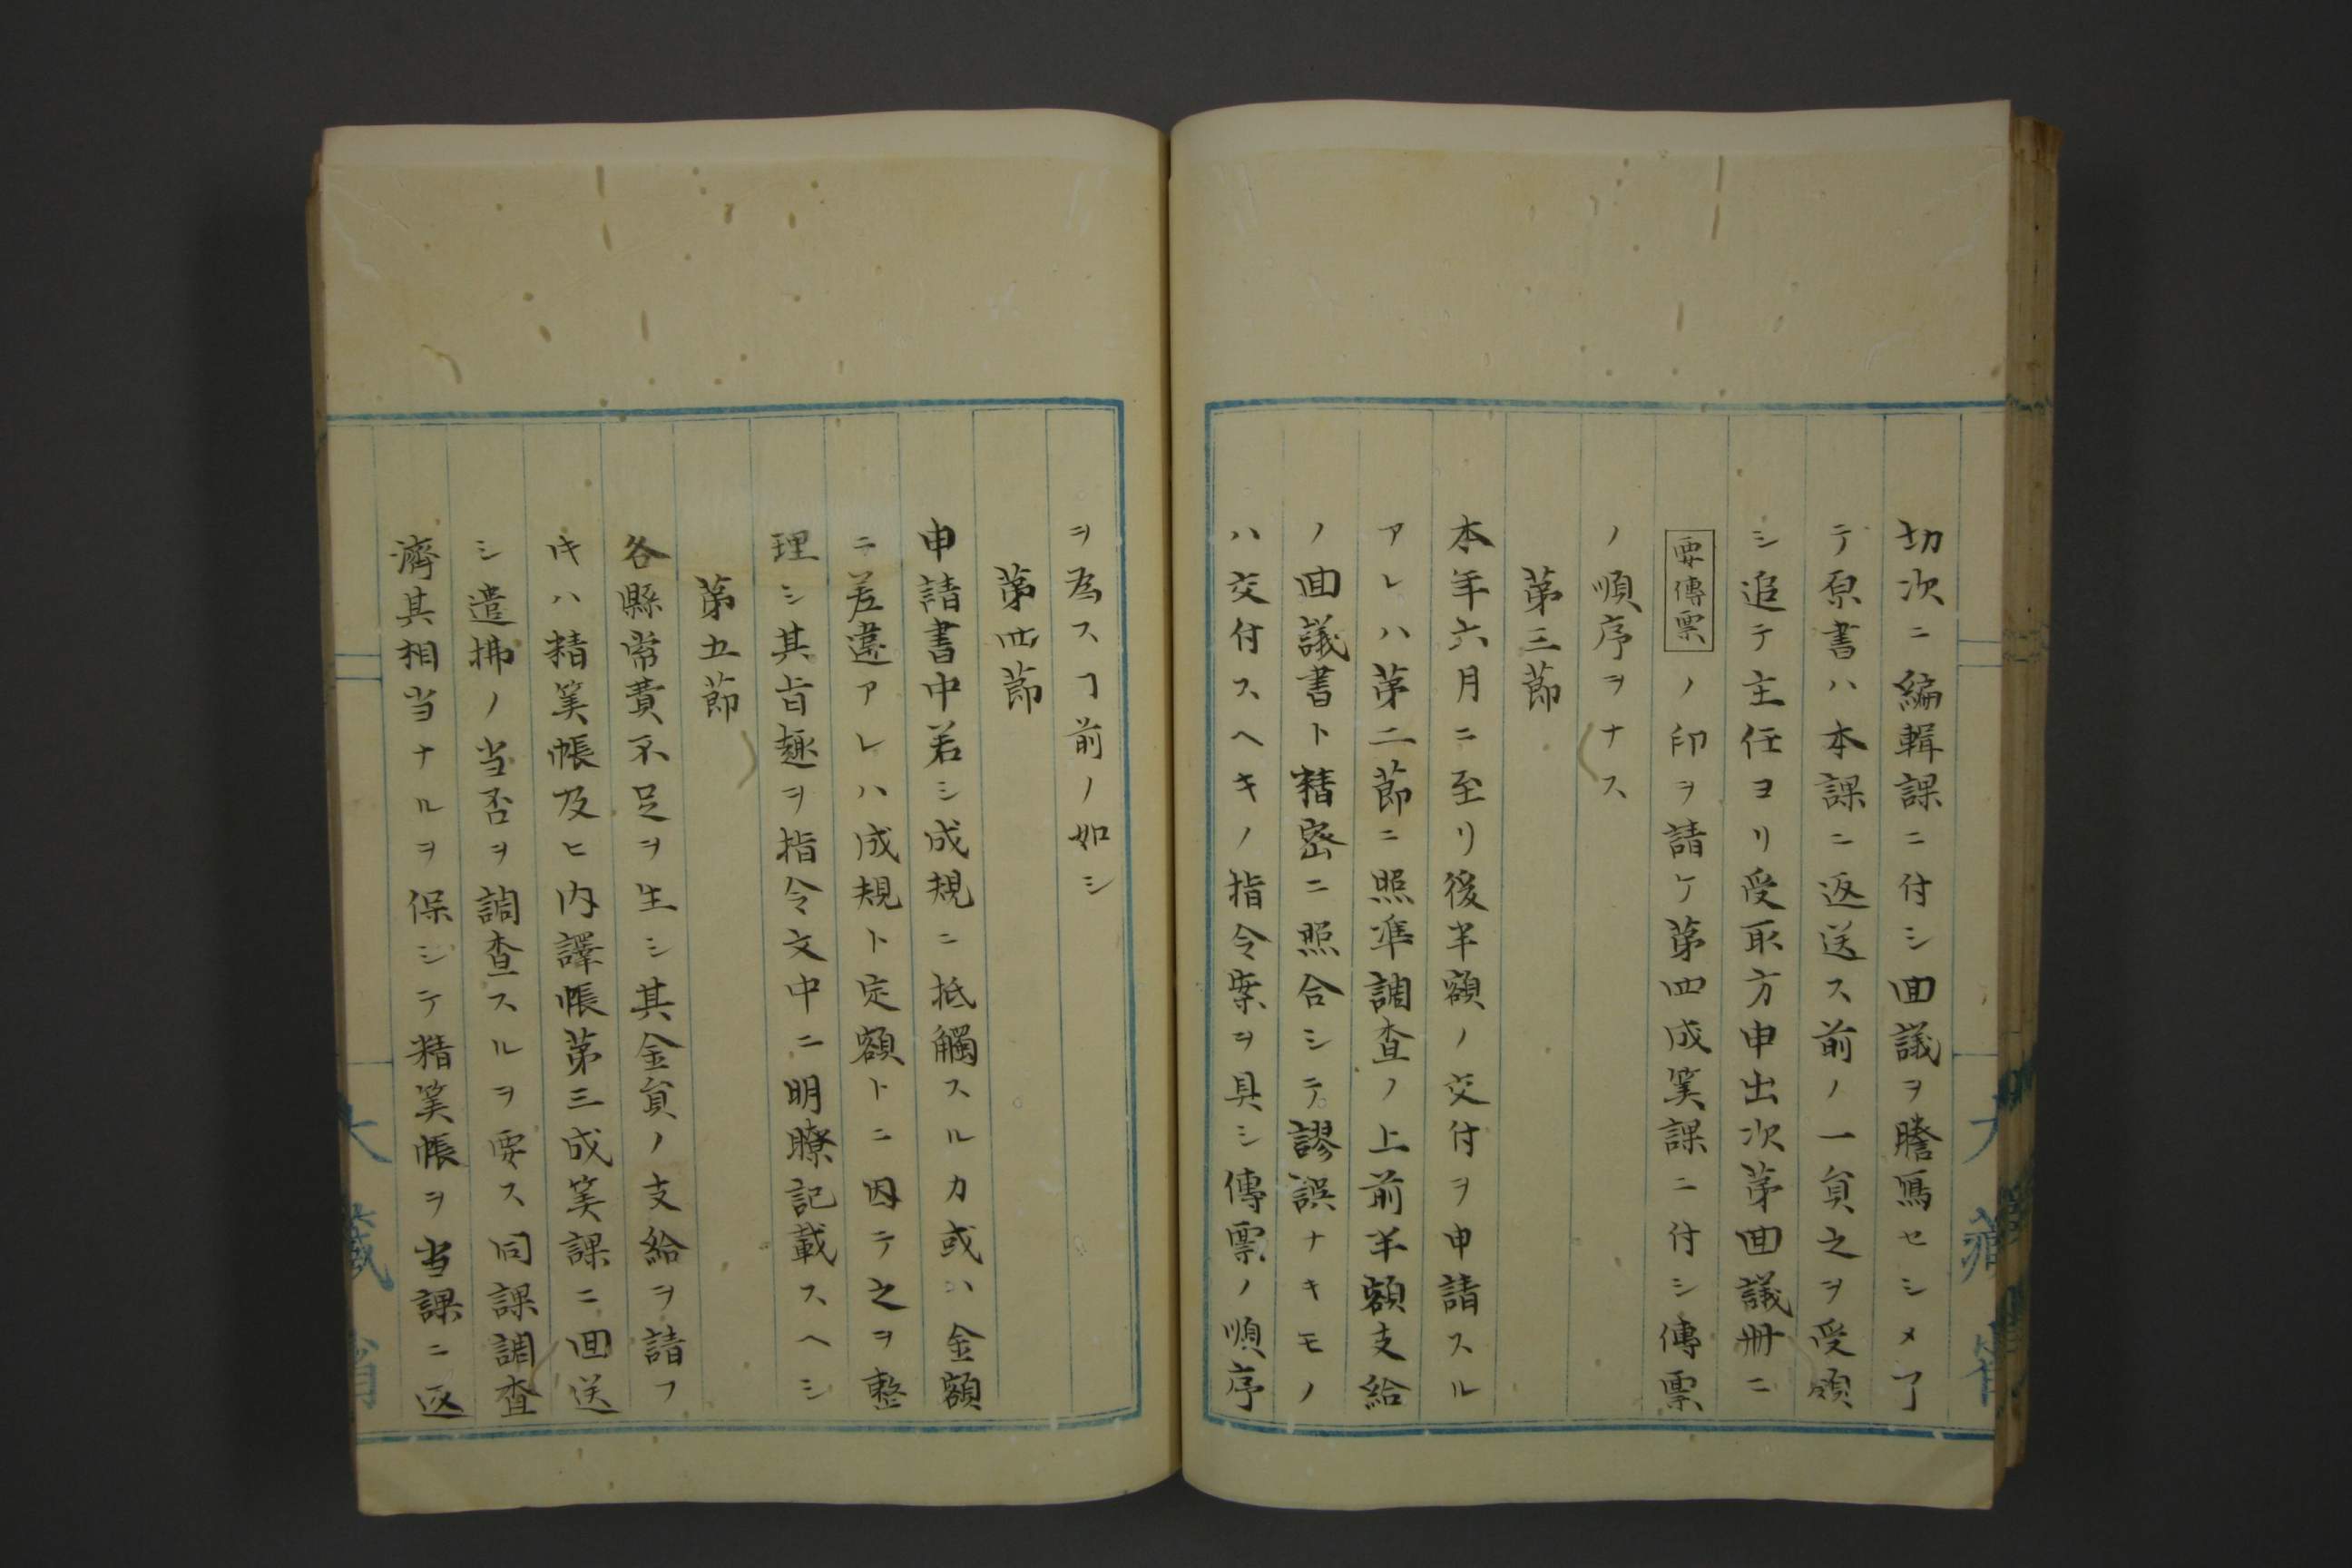 切次ニ編輯課ニ付シ回議ヲ謄寫セシメ了
テ原書ハ本課ニ返送ス前ノ一員之ヲ受領
シ追テ主任ヨリ受取方申出次第回議冊ニ
要傳票ノ印ヲ請ケ第四成筭課ニ付シ傳票
ノ順序ヲナス
第三節
本年六月ニ至リ後半額ノ交付ヲ申請スル
アレハ第二節ニ照準調査ノ上前半額支給
ノ回議書ト精密ニ照合シテ謬誤ナキモノ
ハ交付スヘキノ指令案ヲ具シ傳票ノ順序
ヲ為スヿ前ノ如シ
第四節
申請書中若シ成規ニ抵觸スルカ或ハ金額
ニ差違アレハ成規ト定額トニ因テ之ヲ整
理シ其旨趣ヲ指令文中ニ明瞭記載スヘシ
第五節
各縣常費不足ヲ生シ其金員ノ支給ヲ請フ
キハ精筭帳及ヒ内譯帳第三成筭課ニ回送
シ遣拂ノ当否ヲ調査スルヲ要ス同課調査
濟其相当ナルヲ保シテ精筭帳ヲ当課ニ返
大藏省